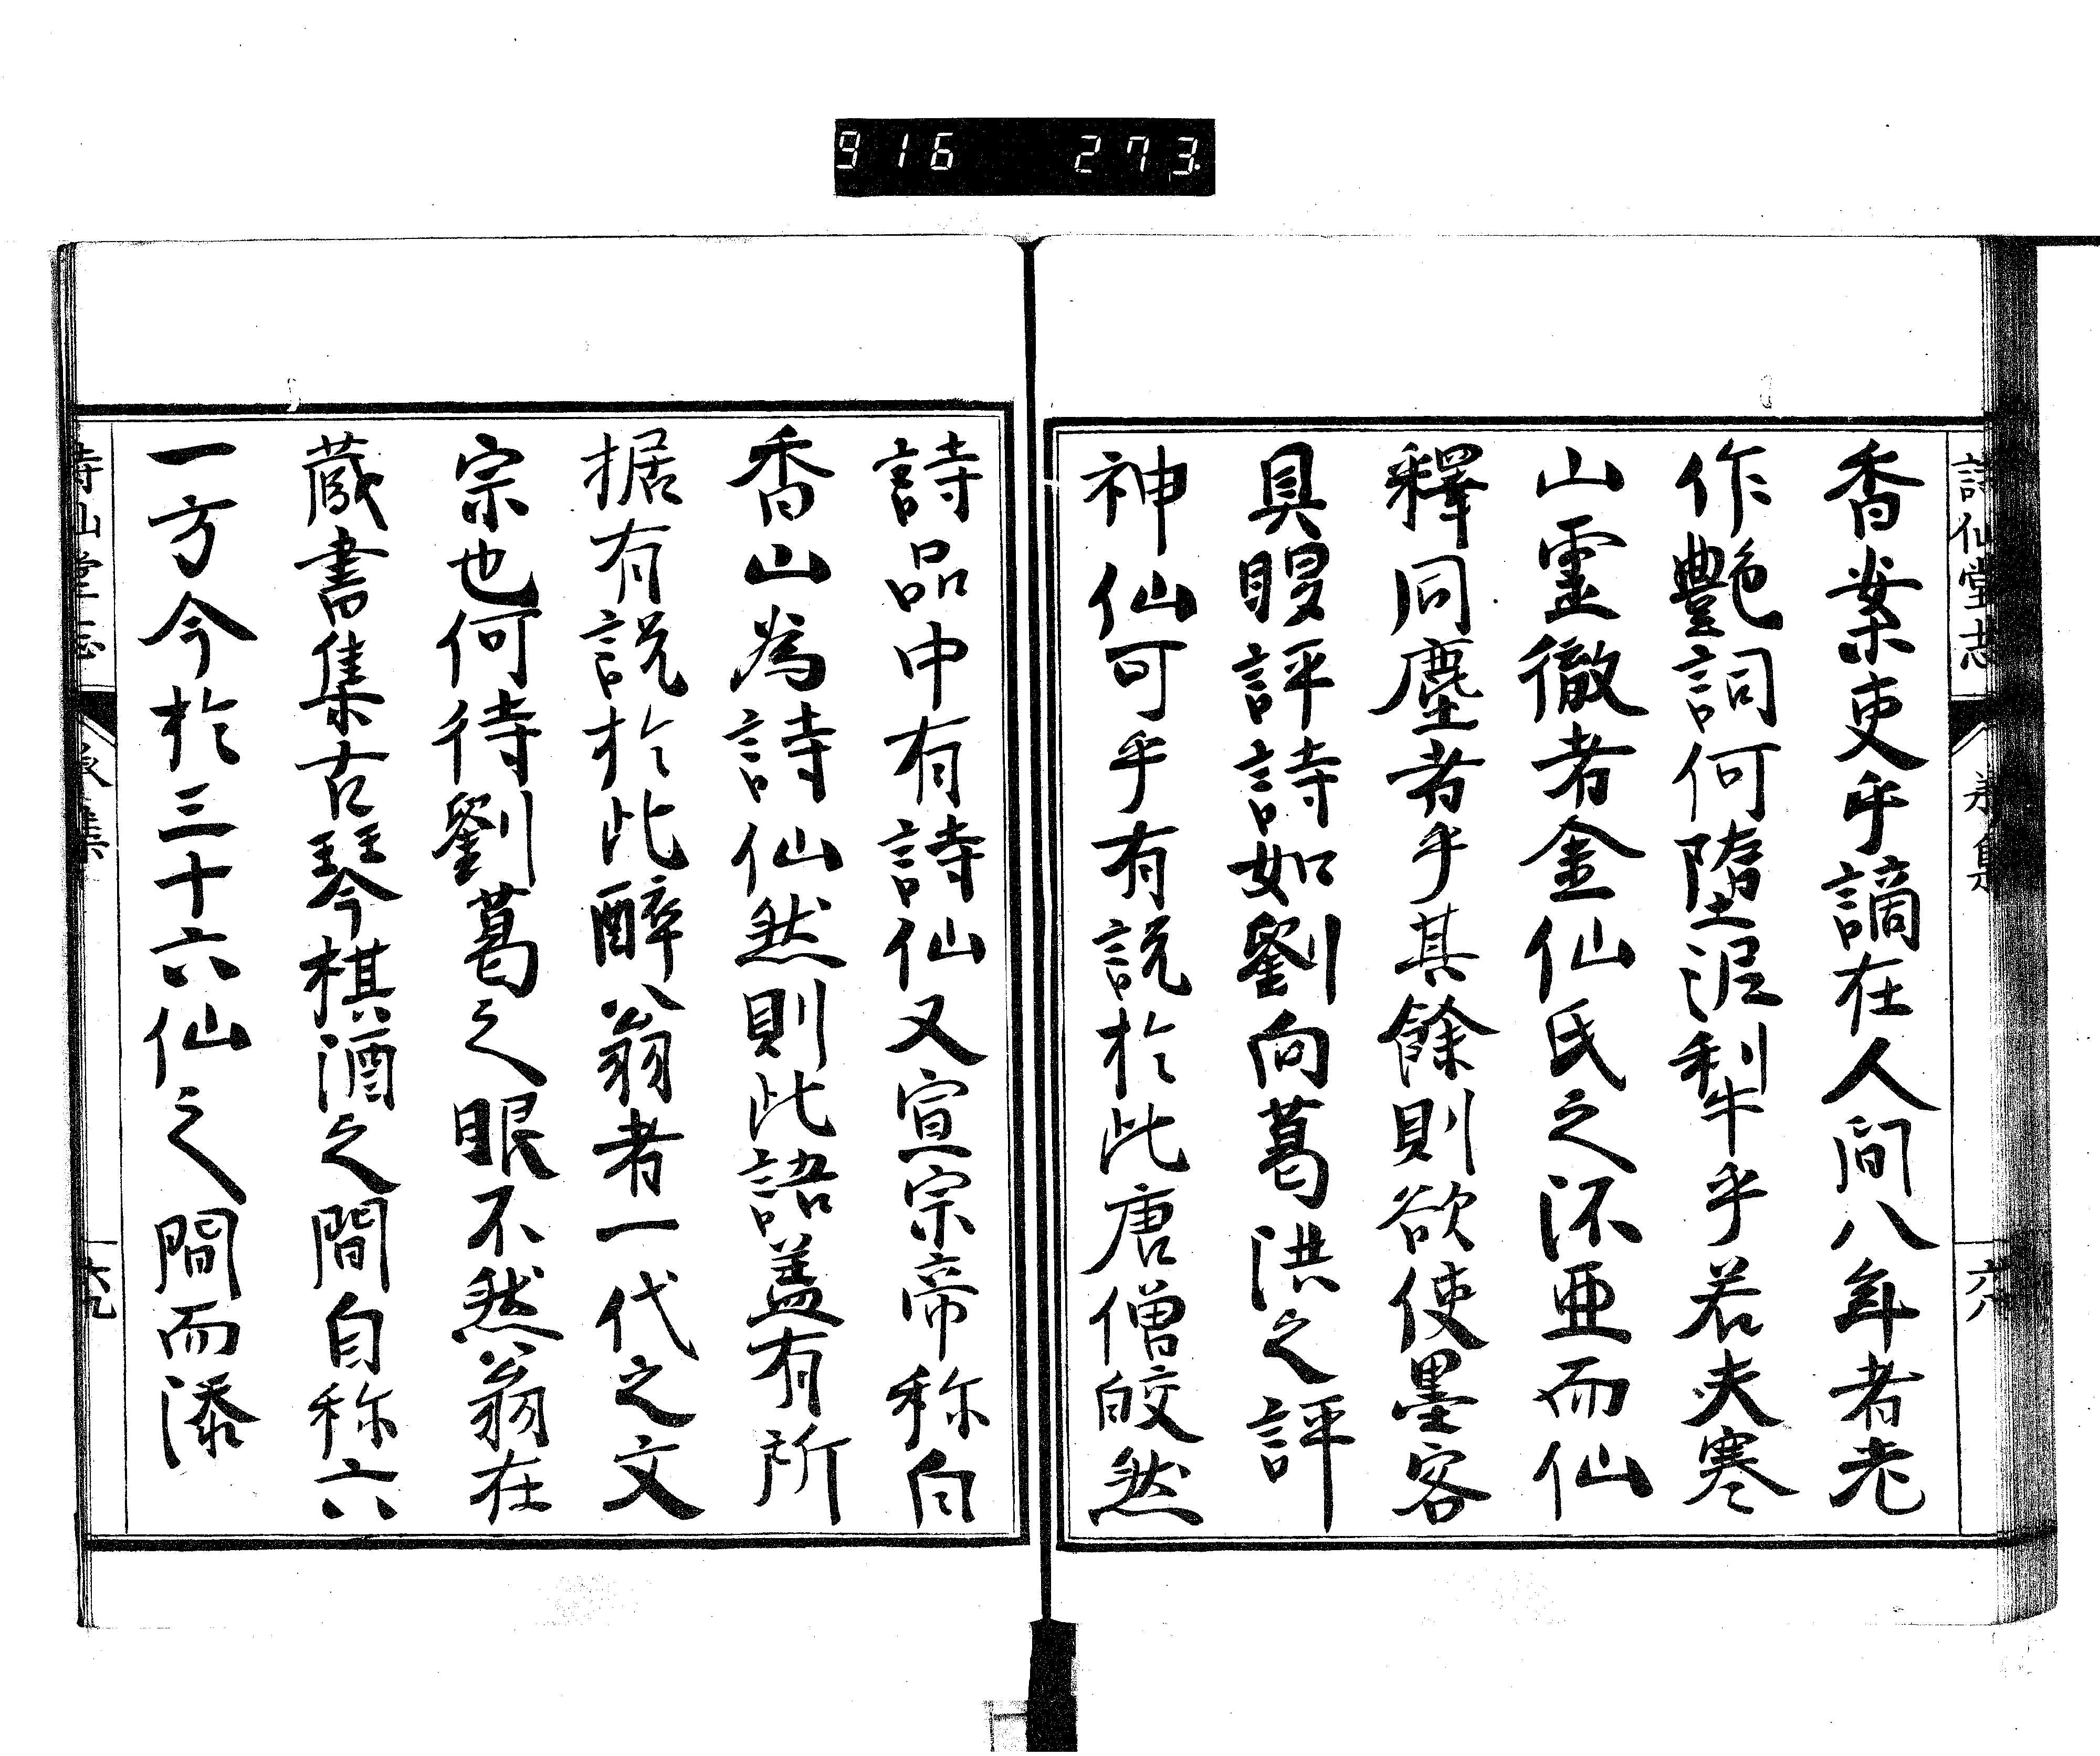 916 273
詩仙堂志
六八
香案吏乎謫在人間八年者老
作艶詞何墮泥犁乎若夫寒
山靈徹者金仙氏之流亜而仙
釋同塵者乎其餘則欲使墨客
具眼評詩如劉向葛洪之評
神仙可乎有説於此唐僧皎然
詩品中有詩仙又宣宗帝称白
香山為詩仙然則此語盖有所
据有説於此醉翁者一代之文
宗也何待劉葛之眼不然翁在
蔵書集古琴棋酒之間自称六
一方今於三十六仙之間而添
詩仙堂志
六九